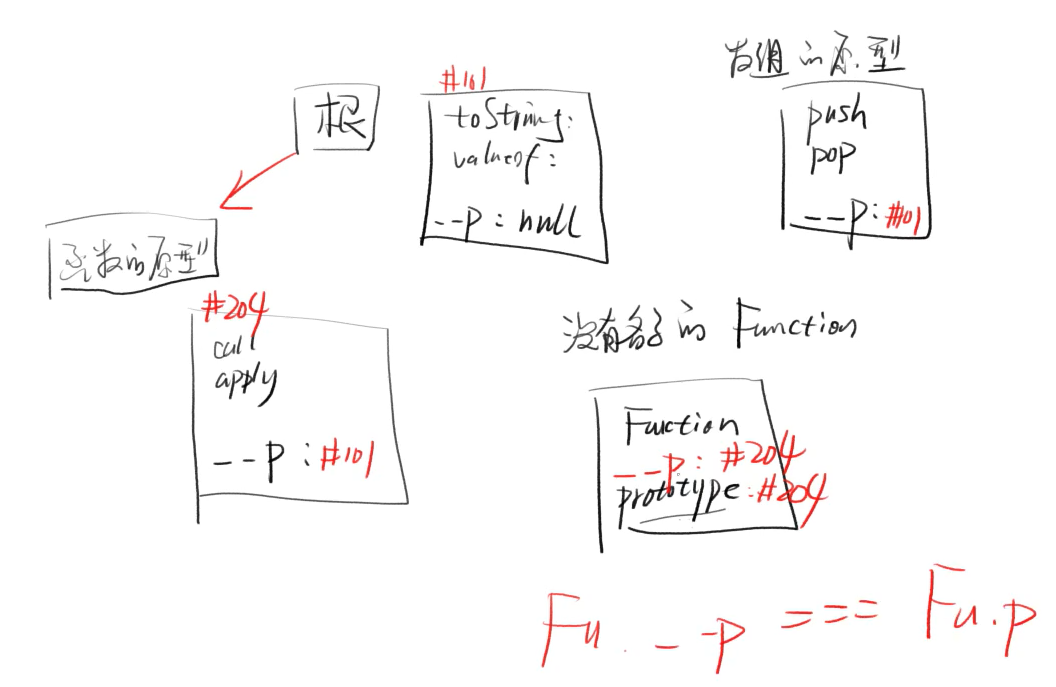 根
#101
toString:
valueof:
--P : null
数组的原型
push
pop
--P: #101
函数的原型
#204
call
apply
--P : #101
没有名字的 Function
Function
--P: #204
prototype: #204
Fu.--P === Fu.p